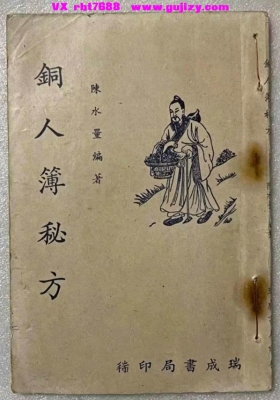 VX rbt7688 www.gujizy.com
銅人簿秘方
陳水量編著
瑞成書局印